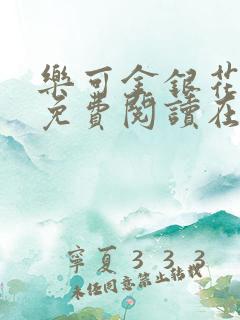 樂可金銀花
免費閱讀在
寧夏333
未經同意禁止轉載